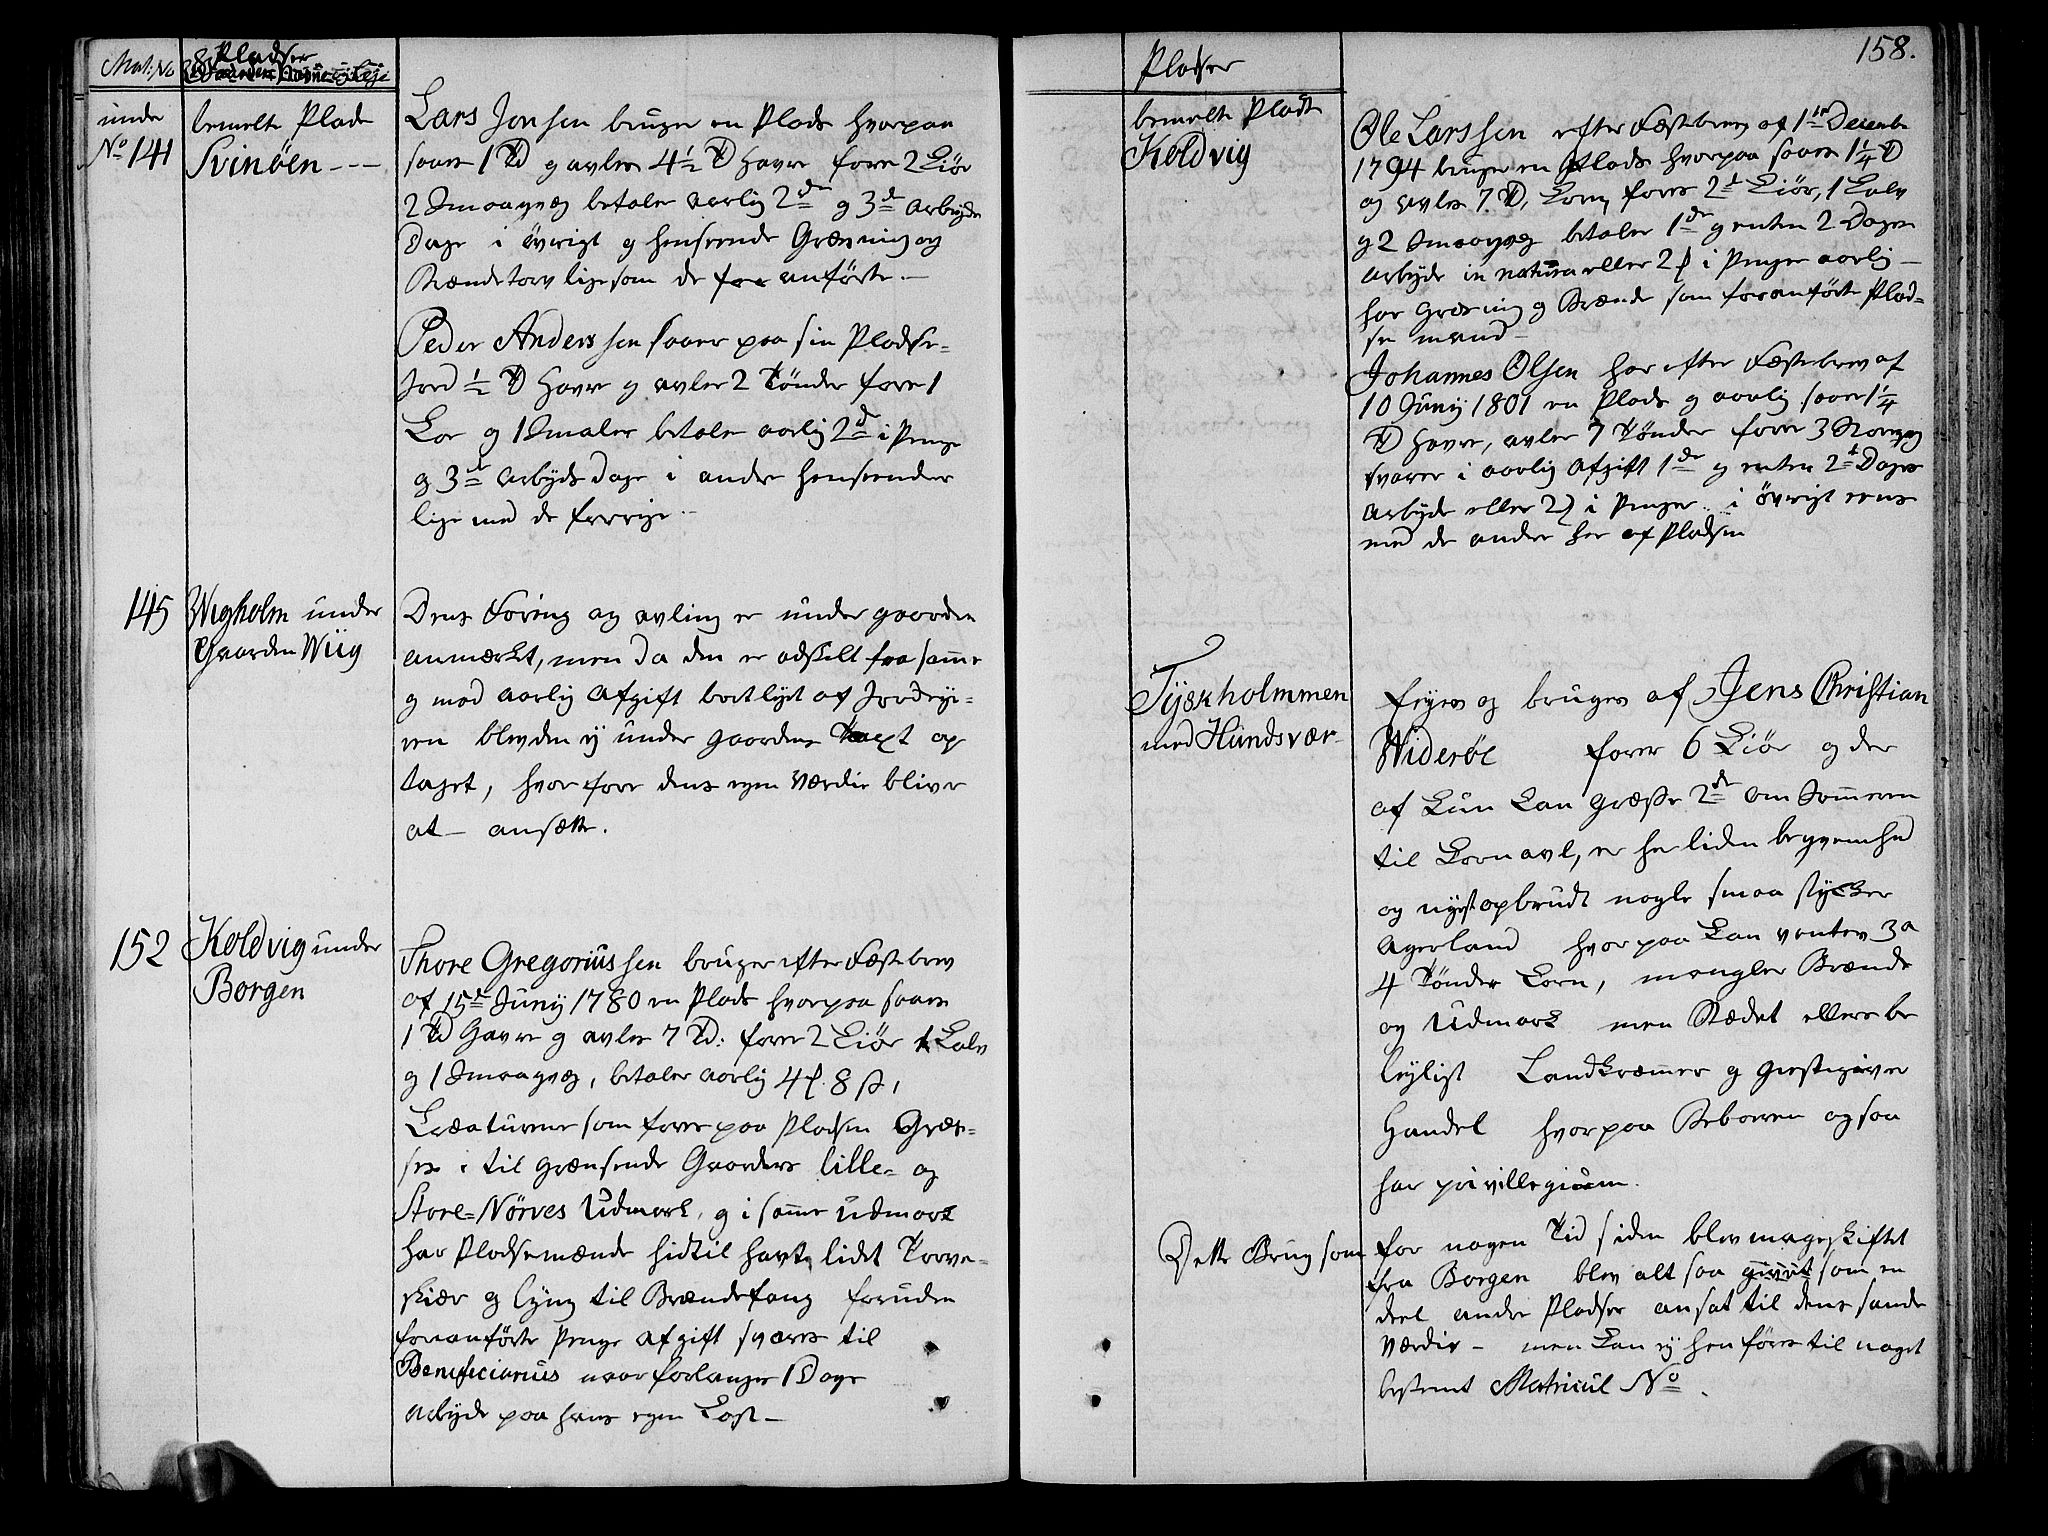 Mat: No
Pladser
under
No 141
bemelte Plads
Svinöen - - -
Lars Jonsen bruger en Plads hvorpaa
saaes 1 Td og avles 4 1/2 Td Havre föder 2 Kiör
2 Smaaqvæg betaler aarlig 2 rd og 3 de Arbeyds
Dage i övrigt og henseende Græsning og
Brændetorv ligesom de for anförte. -
Peder Anderssen saaer paa sin Pladse-
Jord 1/2 Td Havre og avler 2 Tönder föder 1
Koe og 1 Smaler betaler aarlig 2 rd i Penge
og 3 de Arbeyds Dage i andre henseender
lige med de forrige. -
145
Wigholm under
Gaarden Wiig
Dens Foring og avling er under gaarden
anmærket, men da den er adskilt fra samme
og mod aarlig Afgift bortlejet af Jordeje-
ren blev den ej under gaardens Taxt op
taget, hvorfore dens egen Værdie bliver
at ansætte.
152
Koldvig under
Borgen
Thore Gregoriussen bruger efter Fæstebrev
af 15de Junij 1780 en Plads hvorpaa saaes
1 Td Havre og avles 7 Td: föder 2 Kiör 1 Kalv
og 1 Smaaqvæg, betaler aarlig 4 8 ß,
Creaturene som föres paa Pladsen Græs-
ses i til grænsende Gaarders lille- og
Store-Nörves Udmark, og i samme Udmark
har Pladsemænde hidtil havt lidet Torve-
skiær og lÿng til Brændefang foruden
foranförte Penge Afgift svares til
Beneficiarius naar forlanges 1 Dags
Arbeyde paa hans egen Kost -
158.
Pladser
bemelte Plads
Koldvig
Ole Larssen efter Fæstebrev af 1te Decembr
1794 bruger en Plads hvorpaa saaes 1 1/4 Td
og avles 7 Td, Korn, föder 2 Kiör, 1 Kalv
og 2 Smaaqvæg betaler 1 rd og enten 2 Dages
Arbeyde in natura eller 2 i Penge aarlig -
har Græsning og Brænde som foranförte Plad-
se mænd -
Johannes Olsen har efter Fæstebrev af
10 Junij 1801 en Plads og aarlig saaer 1 1/4
Td Havre, avler 7 Tönder föder 3 Storqvæg
svarer i aarlig Afgift 1 rd og enten 2 Dages
Arbeyde eller 2 i Penge. i övrigt eens
med de andre her af Pladsen
Tÿskholmmen
med Hundsvær-
Eyes og bruges af Jens Christian
Wideröe föder 6 Kiör og der
af kun kan græsse 2 de om Sommeren
til Kornavl, er her liden beqvemhed
og nyest opbrudt nogle smaa stÿkker
Agerland hvorpaa kan ventes 3 a
4 Tönder Korn, mangler Brænde
og Udmark men Stædet ellers be
leyligt Landkræmmer og Giestgiver
Handel hvorpaa Beboeren ogsaa
har privillegium.
Dette Brug som for nogen Tid siden blev mageskiftet
fra Borgen blev alt saa som en
deel andre Pladser ansat til dens sande
Værdie - men kan ej henföres til noget
bestemt Matricul No.